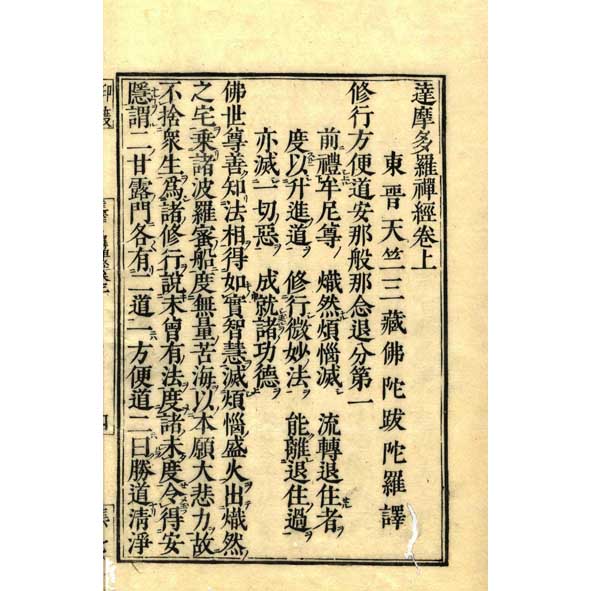 達摩多羅禪經卷上
東晉天竺三藏佛陀跋陀羅譯
修行方便道安那般那念退分第一
前禮牟尼尊 熾然煩惱滅 流轉退住者
度以升進道 修行微妙法 能離退住過
亦滅一切惡 成就諸功德
佛世尊善知法相得如實智慧滅煩惱盛火出熾然
之宅乘諸波羅蜜船度無量苦海以本願大悲力故
不捨衆生爲諸修行說未曾有法度諸未度令得安
隱謂二甘露門各有二道一方便道二曰勝道清淨